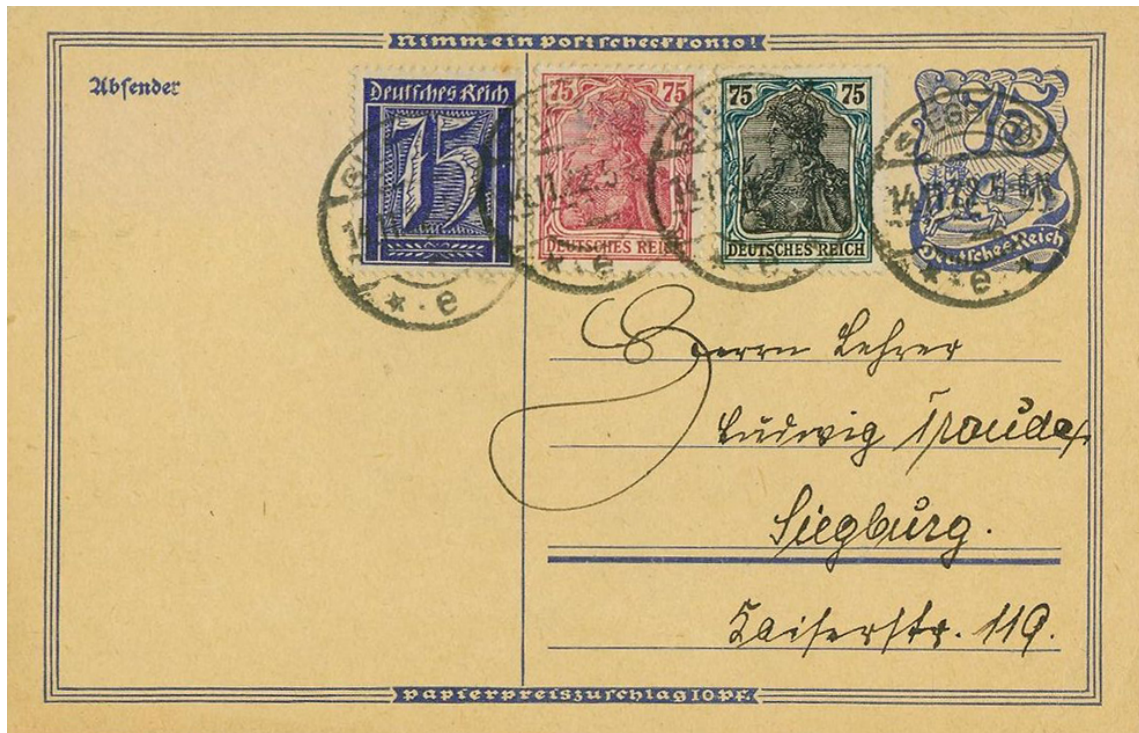 Nimm ein Postscheckkonto!
Absender
Deutsches Reich
75
75 75
DEUTSCHES REICH
75 75
DEUTSCHES REICH
75
Deutsches Reich
SIEGBURG
14.11.22.5-6N
* e *
Herrn Lehrer
Ludwig
Siegburg.
Kaiserstr. 119.
Papierpreiszuschlag 10 Pf.